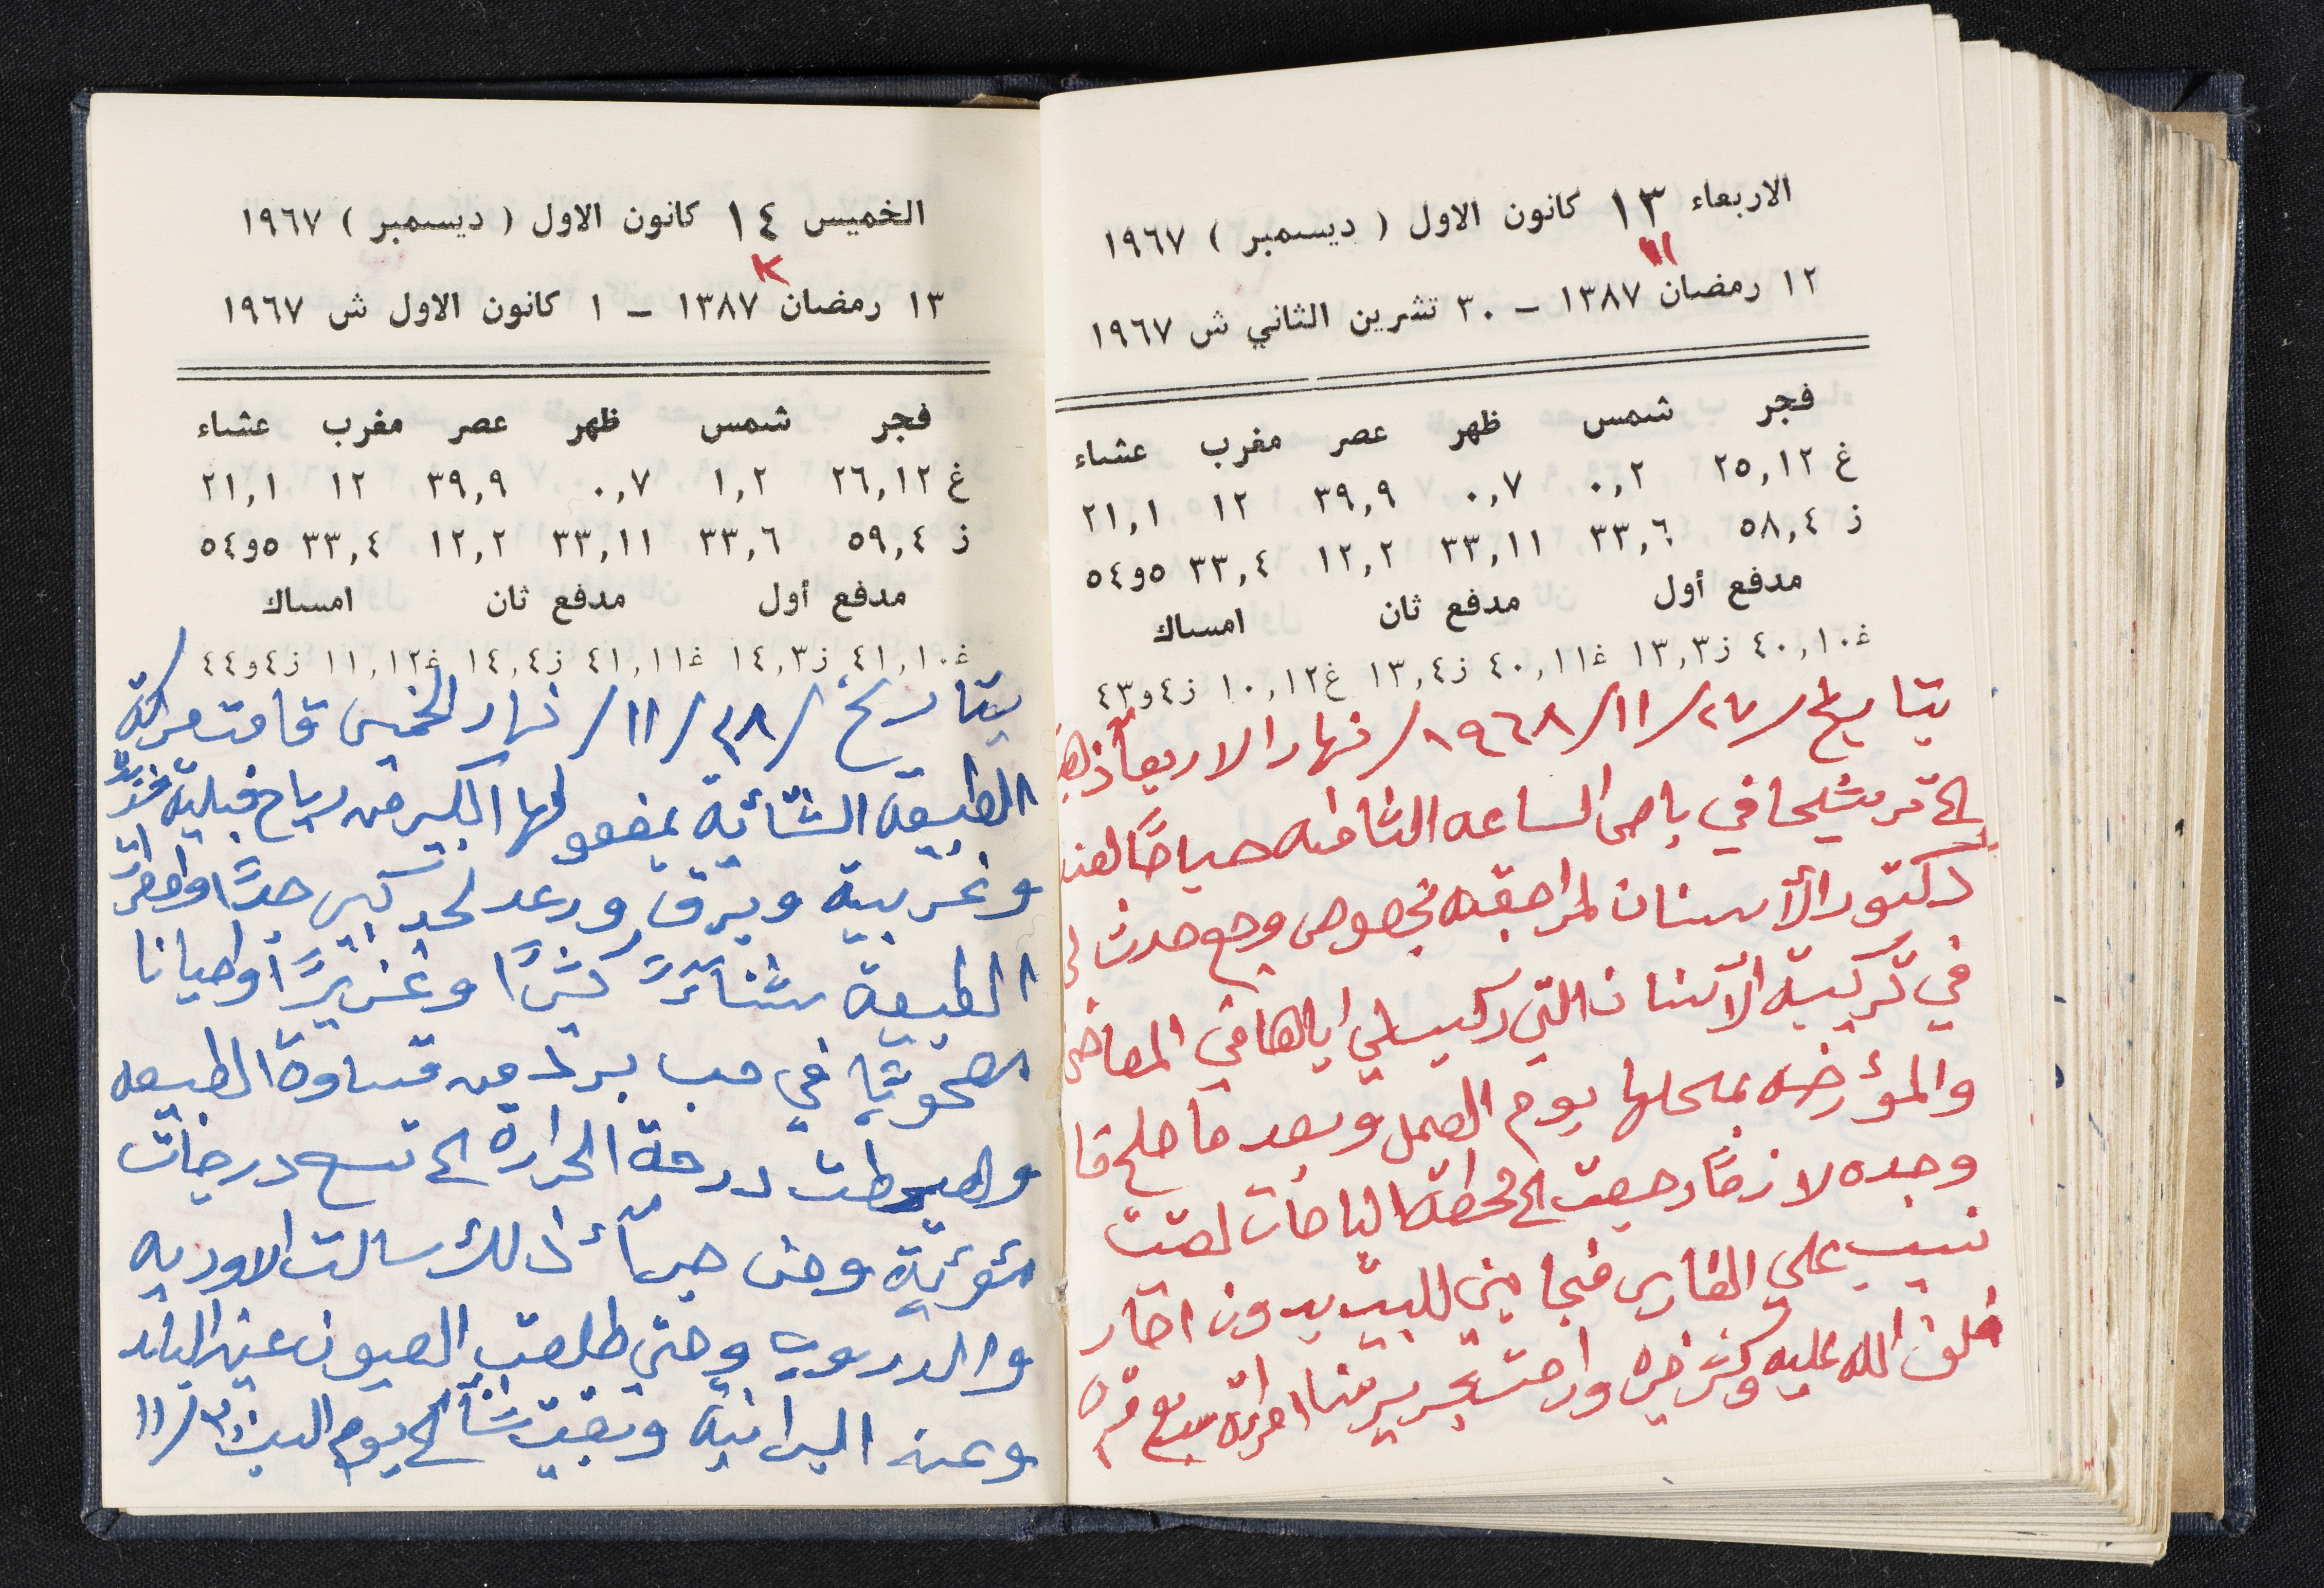 الاربعاء ١٣ كانون الاول ( ديسمبر ) ١٩٦٧
١٢ رمضان ١٣٨٧ – ٣٠ تشرين الثاني ش ١٩٦٧
فجر شمس ظهر عصر مغرب عشاء
غ ٢٥,١٢ ٠,٢ ٠,٧ ٣٩,٩ ١٢ ٢١,١
ز ٥٨,٤ ٣٣,٦ ٣٣,١١ ١٢,٢ ٣٣,٤ ٥و٥٤
مدفع أول مدفع ثان امساك
غ ٤٠,١٠ ز ١٣,٣ غ ٤٠,١١ ز ١٣,٤ غ ١٠,١٢ ز ٤و٤٣
بتاريخ / ٢٧ / ١١ / ١٩٦٨ / نهار الاربعآ ذهبت
الى ترشيحا في باص الساعه الثامنه صباحًا لعند
دكتور الأسنان لمراجعته بخصوص وجع حدث لي
في تركيبة الأسنان التي ركبسلي اياها في الماضي
والمؤرخه بمحلها يوم العمل وبعد ما صلح ما
وجده لازمًا رجعت الى محطة الباصات لعنت
نسيب علي الفارس فجابني للبيت بدون اجار
خلف الله عليه وكتر خيره وراحت بحرير منا امرأته سبع قره
الخميس ١٤ كانون الاول ( ديسمبر ) ١٩٦٧
١٣ رمضان ١٣٨٧ – ١ كانون الاول ش ١٩٦٧
فجر شمس ظهر عصر مغرب عشاء
غ ٢٦,١٢ ١,٢ ٠,٧ ٣٩,٩ ١٢ ٢١,١
ز ٥٩,٤ ٣٣,٦ ٣٣,١١ ١٢,٢ ٣٣,٤ ٥و٥٤
مدفع أول مدفع ثان امساك
غ ٤١,١٠ ز ١٤,٣ غ ٤١,١١ ز ١٤,٤ غ ١١,١٢ ز ٤و٤٤
بتاريخ / ٢٨ / ١١ / نهار الخميس قامت معركة
الطبيعه الشتائية بمفعولها الكبير من رياح قبلية
وغربية وبرق ورعد لحد كبير جدًا وامطرت
الطبيعه شتاءً كثيرًا وغزيرًا واحيانا
مصحوبًا في حب برد من قساوة الطبيعه
وهبطت درجة الحراره الى تسع درجات
مئوية ومن جرآء ذلك سالت الاوديه
والدروب وحتى طلعت العيون عين البلد
وعين البرانية وبقيت شتآ الى يوم السبت ٣٠ / ١١